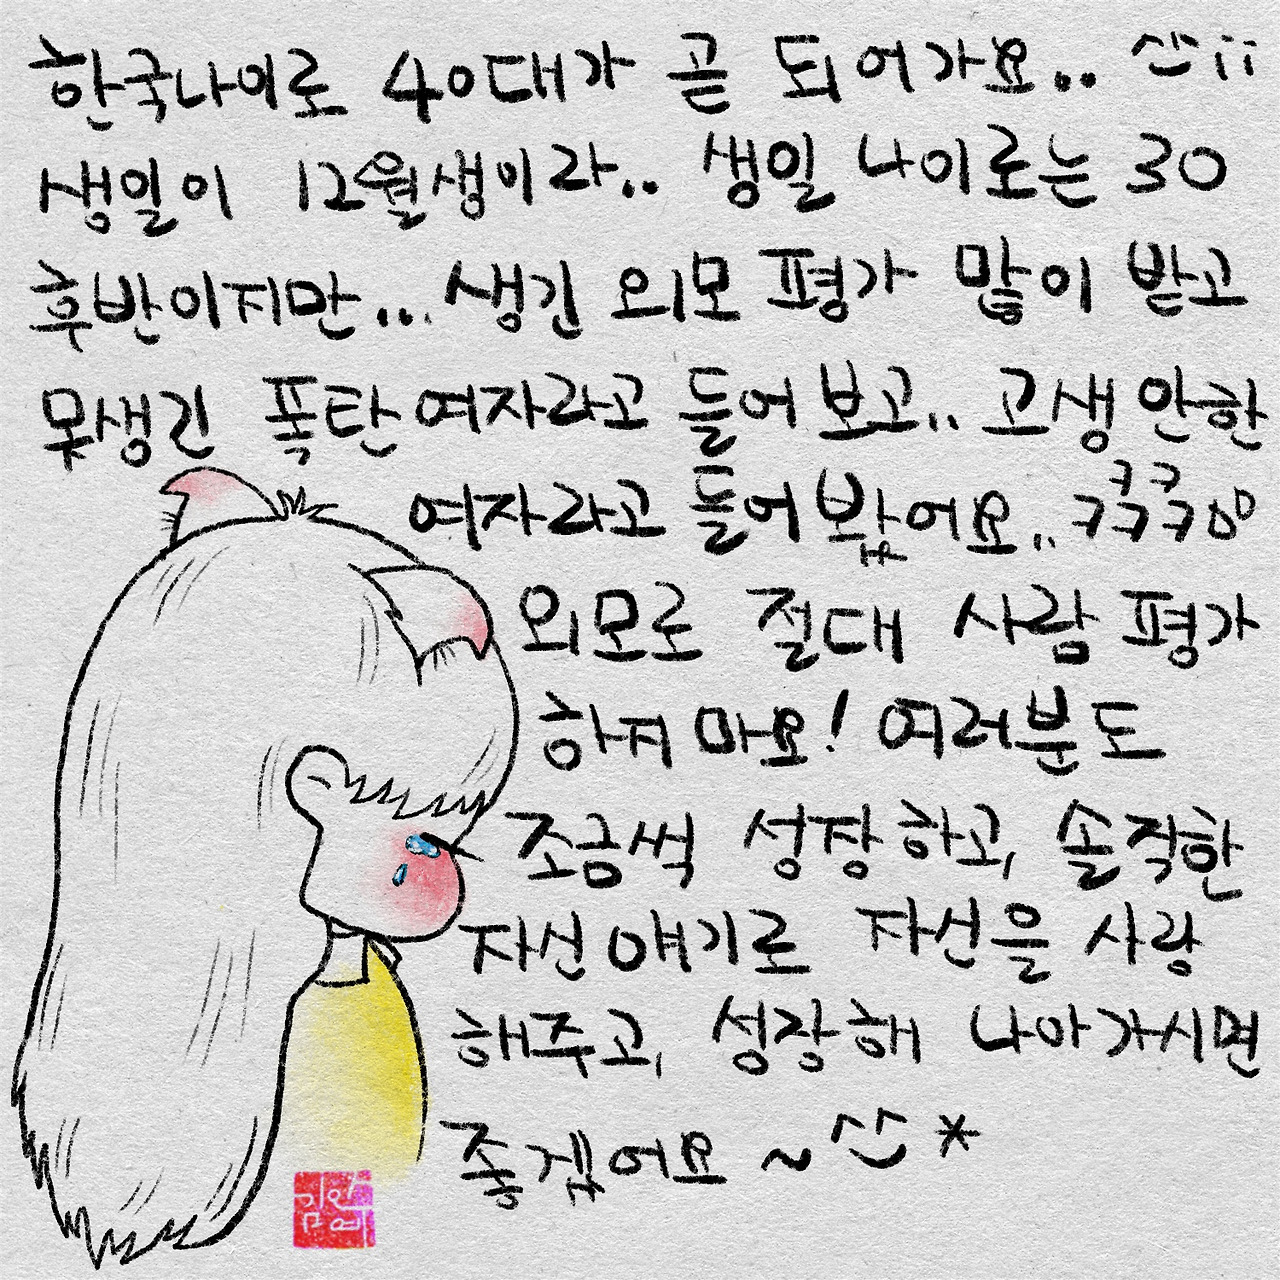 한국나이로 40대가 곧 되어가요.. ^^;;
생일이 12월생이라.. 생일 나이로는 30
후반이지만... 생긴 외모 평가 많이 받고
못생긴 폭탄여자라고 들어보고.. 고생안한
여자라고 들어봤어요.. ㅋㅋㅋㅋㅋㅠ
외모로 절대 사람 평가
하지 마요! 여러분도
조금씩 성장하고, 솔직한
자신 얘기로 자신을 사랑
해주고, 성장해 나아가시면
좋겠어요 ~ ^^*